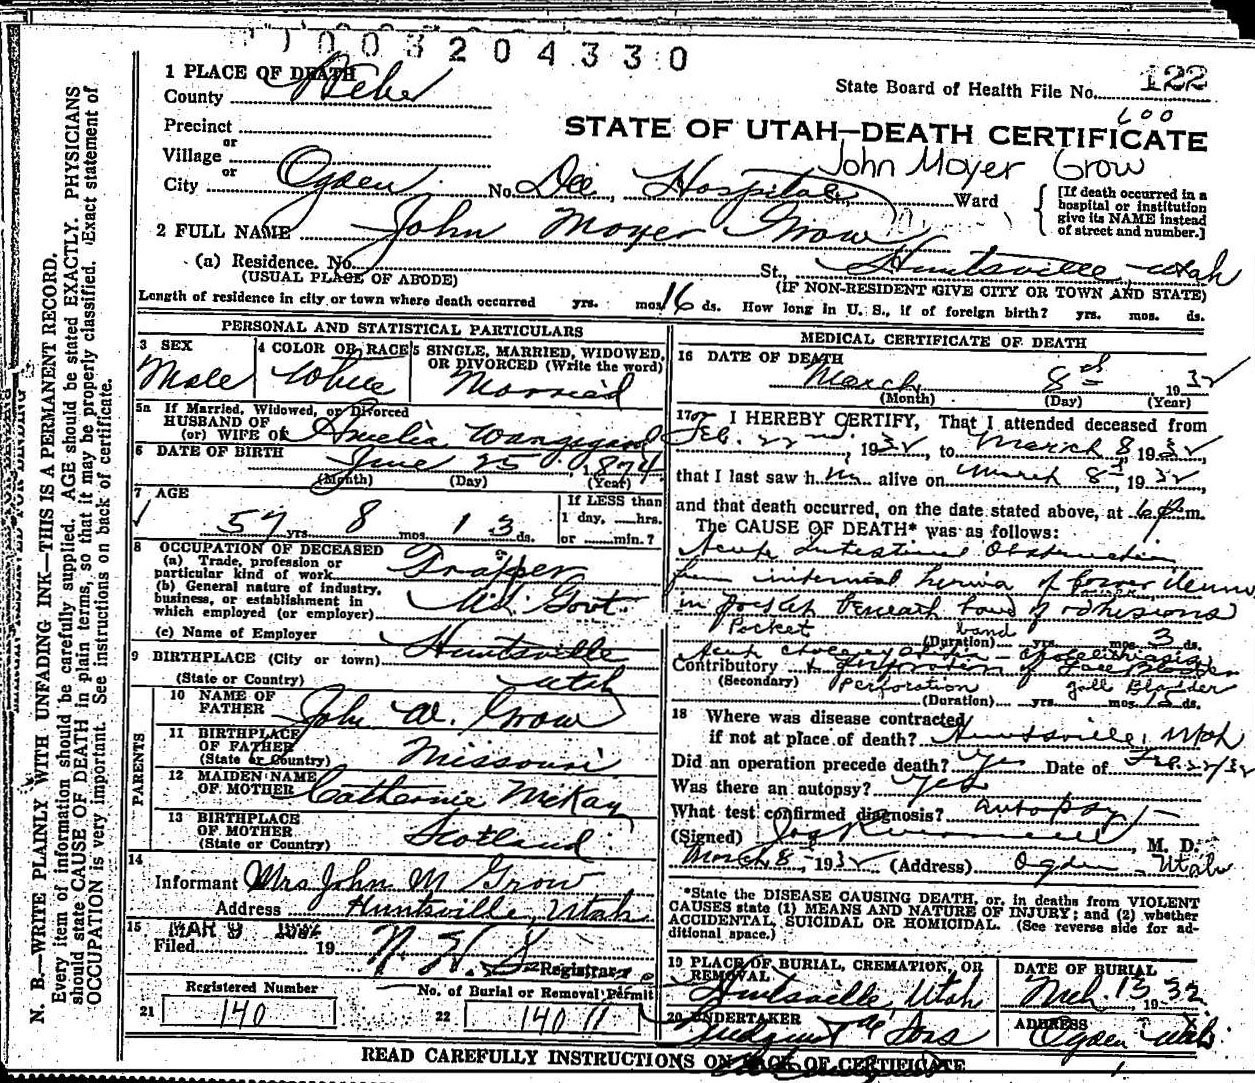 1003204330
1 PLACE OF DEATH
County Weber
State Board of Health File No. 122
600
Precinct
or
Village
or
STATE OF UTAH—DEATH CERTIFICATE
John Moyer Grow
City Ogden No. Dee Hospital St., Ward
[If death occurred in a
hospital or institution
give its NAME instead
of street and number.]
2 FULL NAME John Moyer Grow
(a) Residence. No. St., Huntsville, Utah
(USUAL PLACE OF ABODE) (IF NON-RESIDENT GIVE CITY OR TOWN AND STATE)
Length of residence in city or town where death occurred yrs. mos. 16 ds. How long in U. S., if of foreign birth? yrs. mos. ds.
PERSONAL AND STATISTICAL PARTICULARS
3 SEX
Male
4 COLOR OR RACE
White
5 SINGLE, MARRIED, WIDOWED,
OR DIVORCED (Write the word)
Married
5a If Married, Widowed, or Divorced
HUSBAND OF
(or) WIFE OF Amelia
6 DATE OF BIRTH June 25, 1874
(Month) (Day) (Year)
7 AGE
57 yrs. 8 mos. 13 ds.
If LESS than
1 day, hrs.
or min.?
8 OCCUPATION OF DECEASED
(a) Trade, profession or
particular kind of work Trapper
(b) General nature of industry,
business, or establishment in
which employed (or employer) U.S. Govt.
(c) Name of Employer
9 BIRTHPLACE (City or town) Huntsville
(State or Country) Utah
PARENTS
10 NAME OF
FATHER John W. Grow
11 BIRTHPLACE
OF FATHER Missouri
(State or Country)
12 MAIDEN NAME
OF MOTHER Catherine McKay
13 BIRTHPLACE
OF MOTHER Scotland
(State or Country)
14
Informant Mrs John M Grow
Address Huntsville, Utah
15 MAR 9 1932
Filed 19
Registrar
Registered Number
21 140
No. of Burial or Removal Permit
22 140 11
MEDICAL CERTIFICATE OF DEATH
16 DATE OF DEATH
March 8th 1932
(Month) (Day) (Year)
17 I HEREBY CERTIFY, That I attended deceased from
Feb. 22nd, 1932, to March 8, 1932,
that I last saw him alive on March 8th, 1932,
and that death occurred, on the date stated above, at 6 p.m.
The CAUSE OF DEATH* was as follows:
Acute Intestinal Obstruction
from internal hernia of lower ileum
in pocket beneath band of adhesions
Pocket band
(Duration) yrs. mos. 3 ds.
Acute cholecystitis - cholelithiasis
Contributory & Perforation of Gall Bladder
(Secondary) Perforation Gall Bladder
(Duration) yrs. mos. 15 ds.
18 Where was disease contracted
if not at place of death? Huntsville, Utah
Did an operation precede death? Yes Date of Feb. 22/32
Was there an autopsy? Yes
What test confirmed diagnosis? autopsy
(Signed) M. D.
March 8 - 1932 (Address) Ogden - Utah
*State the DISEASE CAUSING DEATH, or, in deaths from VIOLENT
CAUSES state (1) MEANS AND NATURE OF INJURY; and (2) whether
ACCIDENTAL, SUICIDAL OR HOMICIDAL. (See reverse side for ad-
ditional space.)
19 PLACE OF BURIAL, CREMATION, OR
REMOVAL
Huntsville, Utah
DATE OF BURIAL
Mch. 13 1932
20 UNDERTAKER
& Sons
ADDRESS
Ogden Utah
READ CAREFULLY INSTRUCTIONS ON BACK OF CERTIFICATE
N. B.—WRITE PLAINLY WITH UNFADING INK—THIS IS A PERMANENT RECORD.
Every item of information should be carefully supplied. AGE should be stated EXACTLY. PHYSICIANS
should state CAUSE OF DEATH in plain terms, so that it may be properly classified. Exact statement of
OCCUPATION is very important. See instructions on back of certificate.